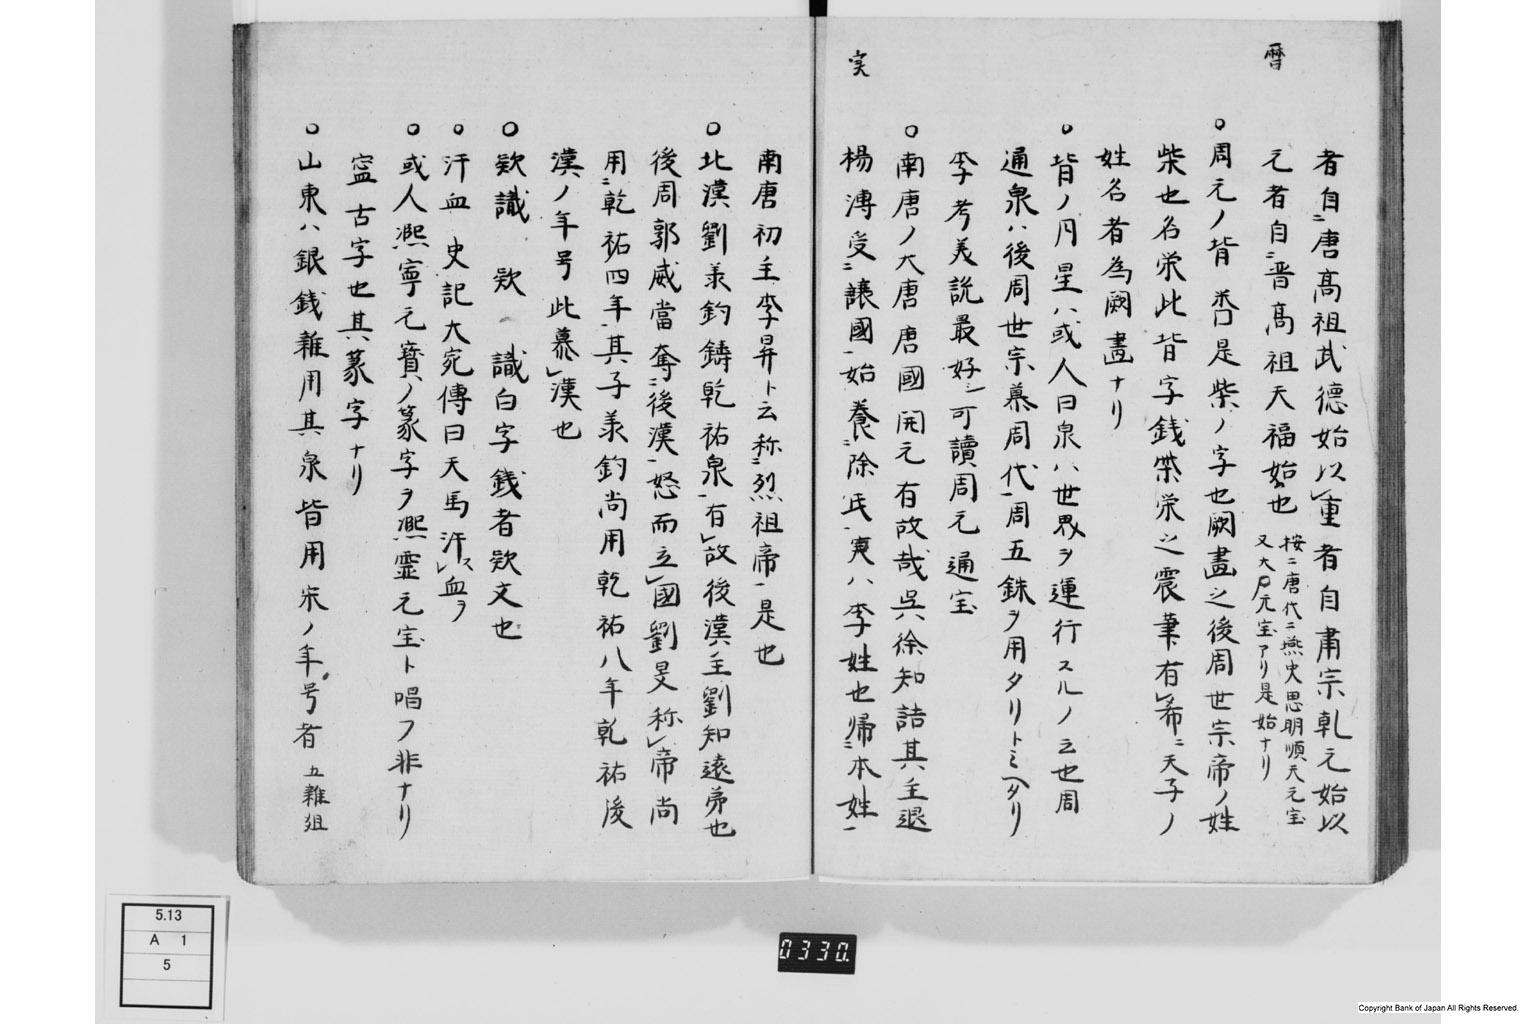 暦
者自ニ唐髙祖武德始以レ重者自肅宗乹元始以
元者自ニ晋髙祖天福始也 按ニ唐代ニ燕史思明順天元宝
又大㞐元宝アリ是始ナリ
○周元ノ背 是柴ノ字也闕畫之後周世宗帝ノ姓
柴也名栄此背字銭柴栄之震筆有レ希ニ天子ノ
姓名者為闕畫ナリ
○背ノ月星ハ或人曰泉ハ世界ヲ運行スルノ云也周
通泉ハ後周世宗慕周代一周五銖ヲ用タリトミヘタリ
李孝美説最好シ可讀周元通宝
○南唐ノ大唐唐國開元有故哉呉徐知誥其主退
楊溥受ニ譲國一始養ニ除氏一実ハ李姓也帰ニ本姓一
実
南唐初主李昇ト云称ニ烈祖帝一是也
○北漢劉承鈞鑄乾祐泉一有レ故後漢主劉知遠弟也
後周郭威當奪ニ後漢一怒而立レ國劉旻称レ帝尚
用ニ乾祐四年其子承鈞尚用乾祐八年乾祐後
漢ノ年号此慕レ漢也
○欵識 欵 識白字銭者欵文也
○汗血 史記大宛傳曰天馬汗レス血ヲ
○或人凞寧元寳ノ篆字ヲ凞霊元宝ト唱フ非ナリ
寍古字也其篆字ナリ
○山東ハ銀銭雜用其泉皆用宋ノ年号者 五雜俎
5.13
A 1
5
0330.
Copyright Bank of Japan All Rights Reserved.